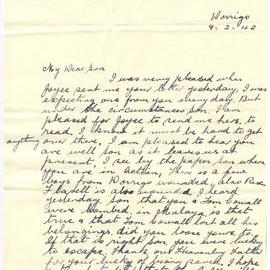 Dorrigo
9.2.42
My Dear Son
I was very pleased when
Joyce sent me your letter yesterday, I was
expecting one from you everyday. But
under the circumstances son, I am
pleased for Joyce to send me hers, to
read, I know it must be hard to get
anything over there, I am pleased to hear you
are well son as it leaves us at
present, I see by the paper son where
you are in action, there is a few
boys from Dorrigo wounded, also
is also wounded, I heard
yesterday son that you & Tom Sewell
were bombed in Malaya, is that
true & that Tom Sewell lost all his
belongings, did you loose yours to,
If that is right son, you were lucky
to escape, thank our Heavenly Father
for your lucky of being saved, I hope